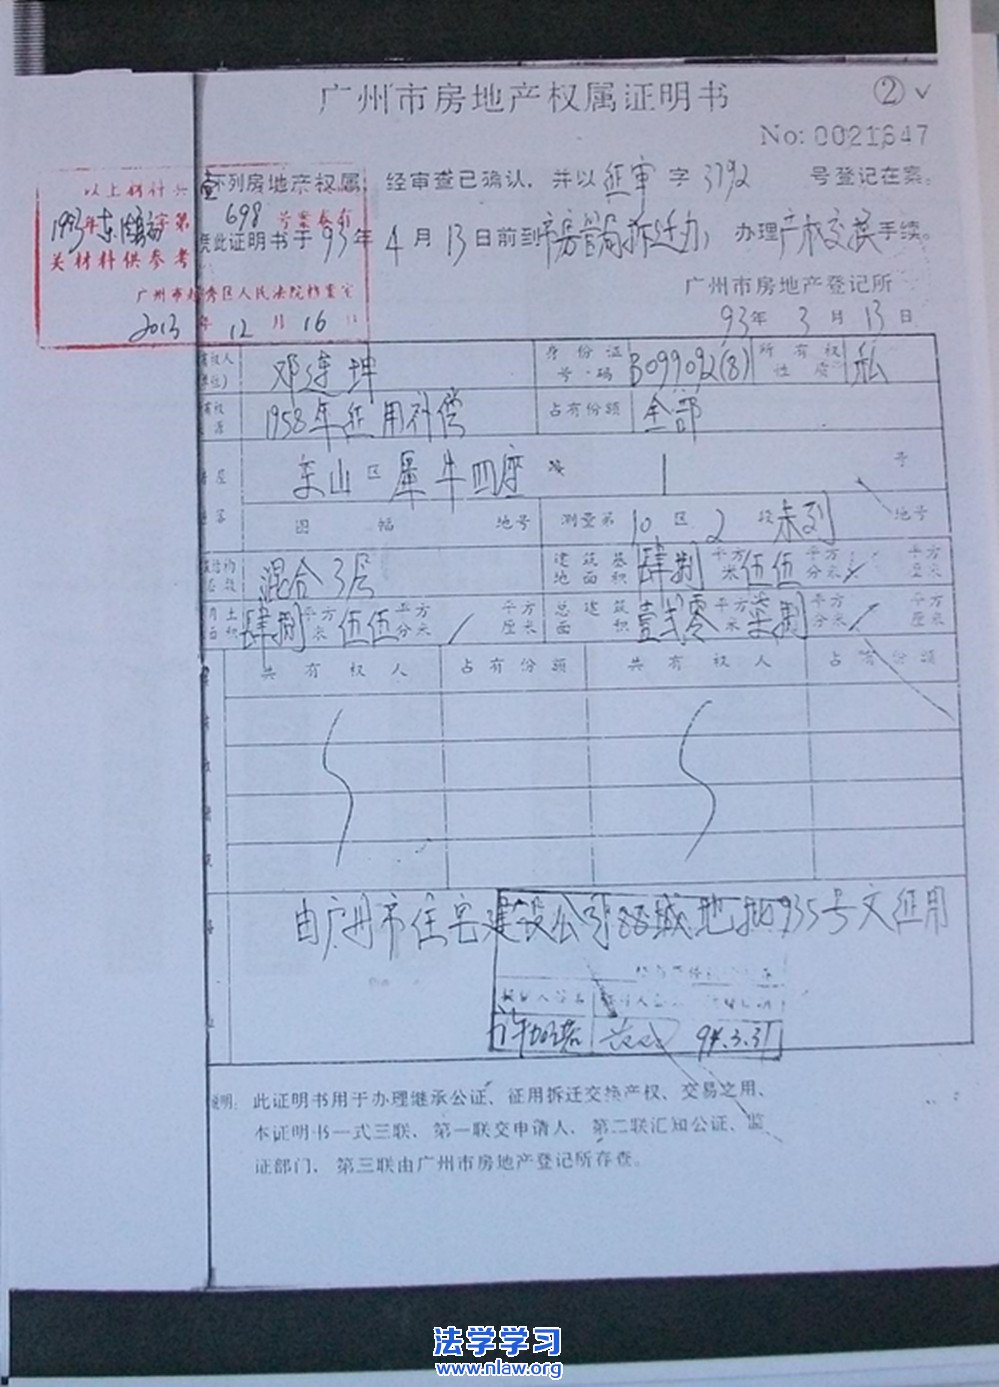 广州市房地产权属证明书 ② ✓
No: 0021547
下列房地产权属, 经审查已确认, 并以征审字3792号登记在案。
凭此证明书于93年4月13日前到市房管局拆迁办, 办理产权交换手续。
广州市房地产登记所
93年3月13日
以上材料共壹
1993年东法房字第698号案卷有
关材料供参考
广州市越秀区人民法院档案室
2013年12月16日
邓连坤 身份证号码 B099092(8) 所有权性质 私
1958年征用补偿 占有份额 全部
东山区犀牛四座 1 号
图幅 地号 测量第10区2段未列地号
混合3层 建筑基地面积 肆捌平方米伍伍平方分米/平方厘米
肆捌平方米伍伍平方分米/平方厘米 总建筑面积 壹贰零平方米柒捌平方分米/平方厘米
共有权人 占有份额 共有权人 占有份额
由广州市住宅建设公司88城地批935号文征用
94.3.31
说明: 此证明书用于办理继承公证、征用拆迁交换产权、交易之用、
本证明书一式三联、第一联交申请人、第二联汇知公证、监
证部门、第三联由广州市房地产登记所存查。
法学学习
www.nlaw.org